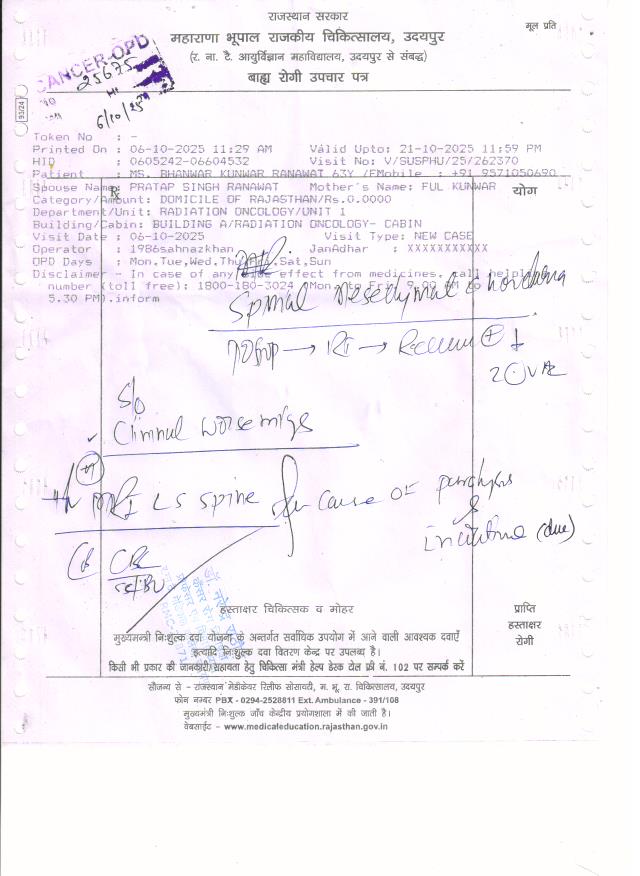 राजस्थान सरकार
मूल प्रति
महाराणा भूपाल राजकीय चिकित्सालय, उदयपुर
(र. ना. टै. आयुर्विज्ञान महाविद्यालय, उदयपुर से संबद्ध)
बाह्य रोगी उपचार पत्र
CANCER-OPD
25675
6/10/25
93/24
Token No : -
Printed On : 06-10-2025 11:29 AM Valid Upto: 21-10-2025 11:59 PM
HID : 0605242-06604532 Visit No: V/SUSPHU/25/262370
Patient : MS. BHANWAR KUNWAR RANAWAT 63Y /F Mobile : +91 9571050690
Spouse Name: PRATAP SINGH RANAWAT Mother's Name: FUL KUNWAR
योग
Category/Amount: DOMICILE OF RAJASTHAN/Rs.0.0000
Department/Unit: RADIATION ONCOLOGY/UNIT 1
Building/Cabin: BUILDING A/RADIATION ONCOLOGY- CABIN
Visit Date : 06-10-2025 Visit Type: NEW CASE
Operator : 1986sahnazkhan JanAdhar : XXXXXXXXXX
OPD Days : Mon,Tue,Wed,Thu,Fri,Sat,Sun
Disclaimer - In case of any side effect from medicines, call helpline
number (toll free): 1800-180-3024 (Mon to Fri, 9.00 AM to
5.30 PM).inform
Spinal
→ RT →
S/o
MRI LS spine for cause of
(due)
CBC
हस्ताक्षर चिकित्सक व मोहर
प्राप्ति
हस्ताक्षर
रोगी
मुख्यमन्त्री निःशुल्क दवा योजना के अन्तर्गत सर्वाधिक उपयोग में आने वाली आवश्यक दवाएँ
इत्यादि निःशुल्क दवा वितरण केन्द्र पर उपलब्ध है।
किसी भी प्रकार की जानकारी/सहायता हेतु चिकित्सा मंत्री हेल्प डेस्क टोल फ्री नं. 102 पर सम्पर्क करें
सौजन्य से - राजस्थान मेडीकेयर रिलीफ सोसायटी, म. भू. रा. चिकित्सालय, उदयपुर
फोन नम्बर PBX - 0294-2528811 Ext. Ambulance - 391/108
मुख्यमंत्री निःशुल्क जाँच केन्द्रीय प्रयोगशाला में की जाती है।
वेबसाईट – www.medicaleducation.rajasthan.gov.in